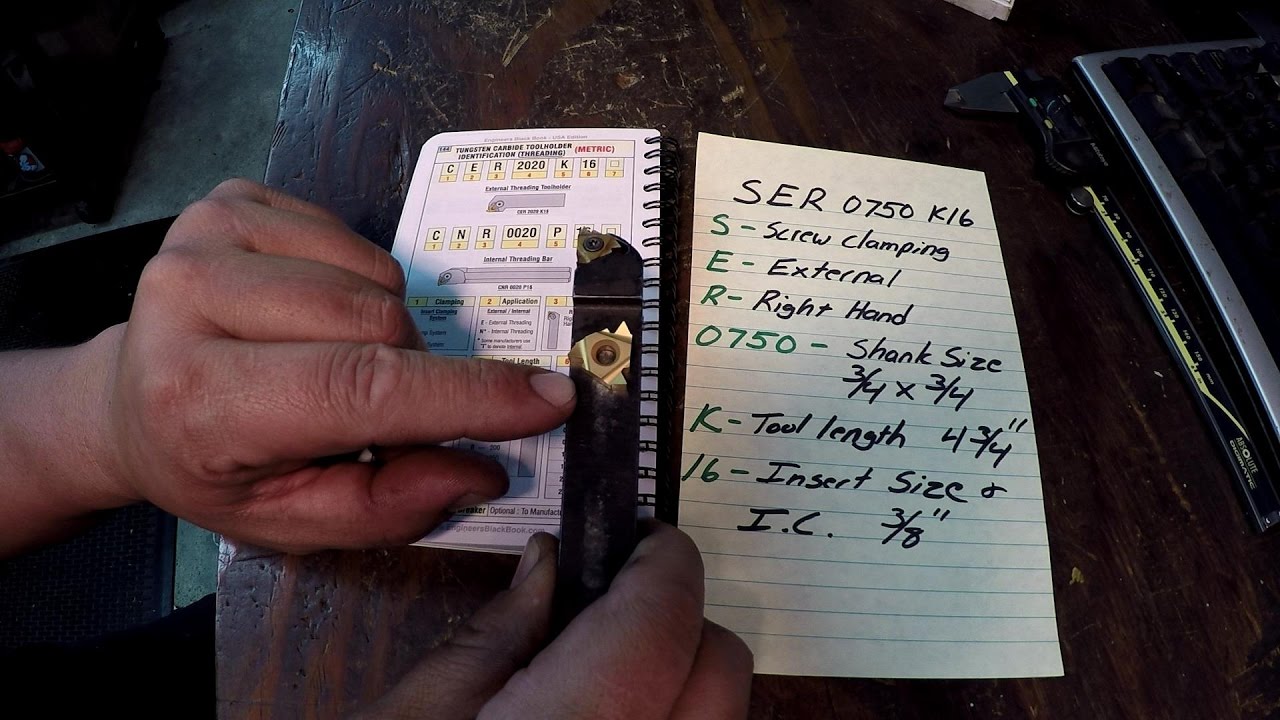 Engineers Black Book - USA Edition
144 TUNGSTEN CARBIDE TOOLHOLDER
IDENTIFICATION (THREADING) (METRIC)
C E R 2020 K 16
1 2 3 4 5 6 7
External Threading Toolholder
CER 2020 K16
C N R 0020 P
1 2 3 4 5
Internal Threading Bar
CNR 0020 P16
1 Clamping 2 Application 3
Insert Clamping External / Internal
System
E - External Threading
N* - Internal Threading
* Some manufacturers use
"I" to denote Internal.
Tool Length
Optional : To Manufactu
EngineersBlackBook.com
SER 0750 K16
S - Screw clamping
E - External
R - Right Hand
0750 - Shank Size
3/4 x 3/4
K - Tool length 4 3/4"
16 - Insert Size &
I.C. 3/8"
ABSOLUTE
DIGIMATIC